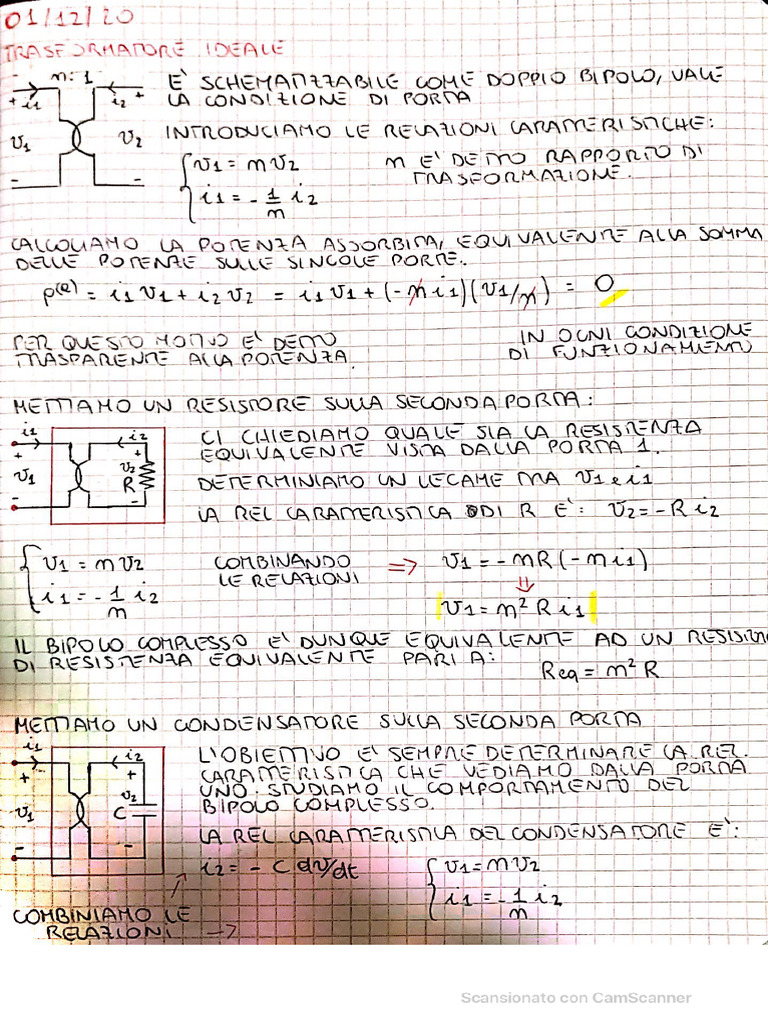 01/12/20
TRASFORMATORE IDEALE
n:1
E' SCHEMATIZZABILE COME DOPPIO BIPOLO, VALE
LA CONDIZIONE DI PORTA
+ i1 i2 +
v1 v2
- -
INTRODUCIAMO LE RELAZIONI CARATTERISTICHE:
{ v1 = n v2
i1 = - 1/n i2
n E' DETTO RAPPORTO DI
TRASFORMAZIONE.
CALCOLIAMO LA POTENZA ASSORBITA, EQUIVALENTE ALLA SOMMA
DELLE POTENZE SULLE SINGOLE PORTE.
p(e) = i1 v1 + i2 v2 = i1 v1 + (- n i1)(v1/n) = 0
PER QUESTO MOTIVO E' DETTO
TRASPARENTE ALLA POTENZA.
IN OGNI CONDIZIONE
DI FUNZIONAMENTO
METTIAMO UN RESISTORE SULLA SECONDA PORTA:
i1 i2
+ +
v1 v2
R
- -
CI CHIEDIAMO QUALE SIA LA RESISTENZA
EQUIVALENTE VISTA DALLA PORTA 1.
DETERMINIAMO UN LEGAME TRA v1 e i1
LA REL CARATTERISTICA DI R E': v2 = - R i2
{ v1 = n v2
i1 = - 1/n i2
COMBINANDO
LE RELAZIONI
⇒ v1 = - nR (- n i1)
⇓
v1 = n² R i1
IL BIPOLO COMPLESSO E' DUNQUE EQUIVALENTE AD UN
DI RESISTENZA EQUIVALENTE PARI A:
Req = n² R
METTIAMO UN CONDENSATORE SULLA SECONDA PORTA
i1 i2
+ +
v1 v2
C
- -
L'OBIETTIVO E' SEMPRE DETERMINARE LA REL.
CARATTERISTICA CHE VEDIAMO DALLA PORTA
UNO. STUDIAMO IL COMPORTAMENTO DEL
BIPOLO COMPLESSO.
LA REL CARATTERISTICA DEL CONDENSATORE E':
i2 = - C dv/dt
{ v1 = n v2
i1 = - 1/n i2
COMBINIAMO LE
RELAZIONI →
Scansionato con CamScanner